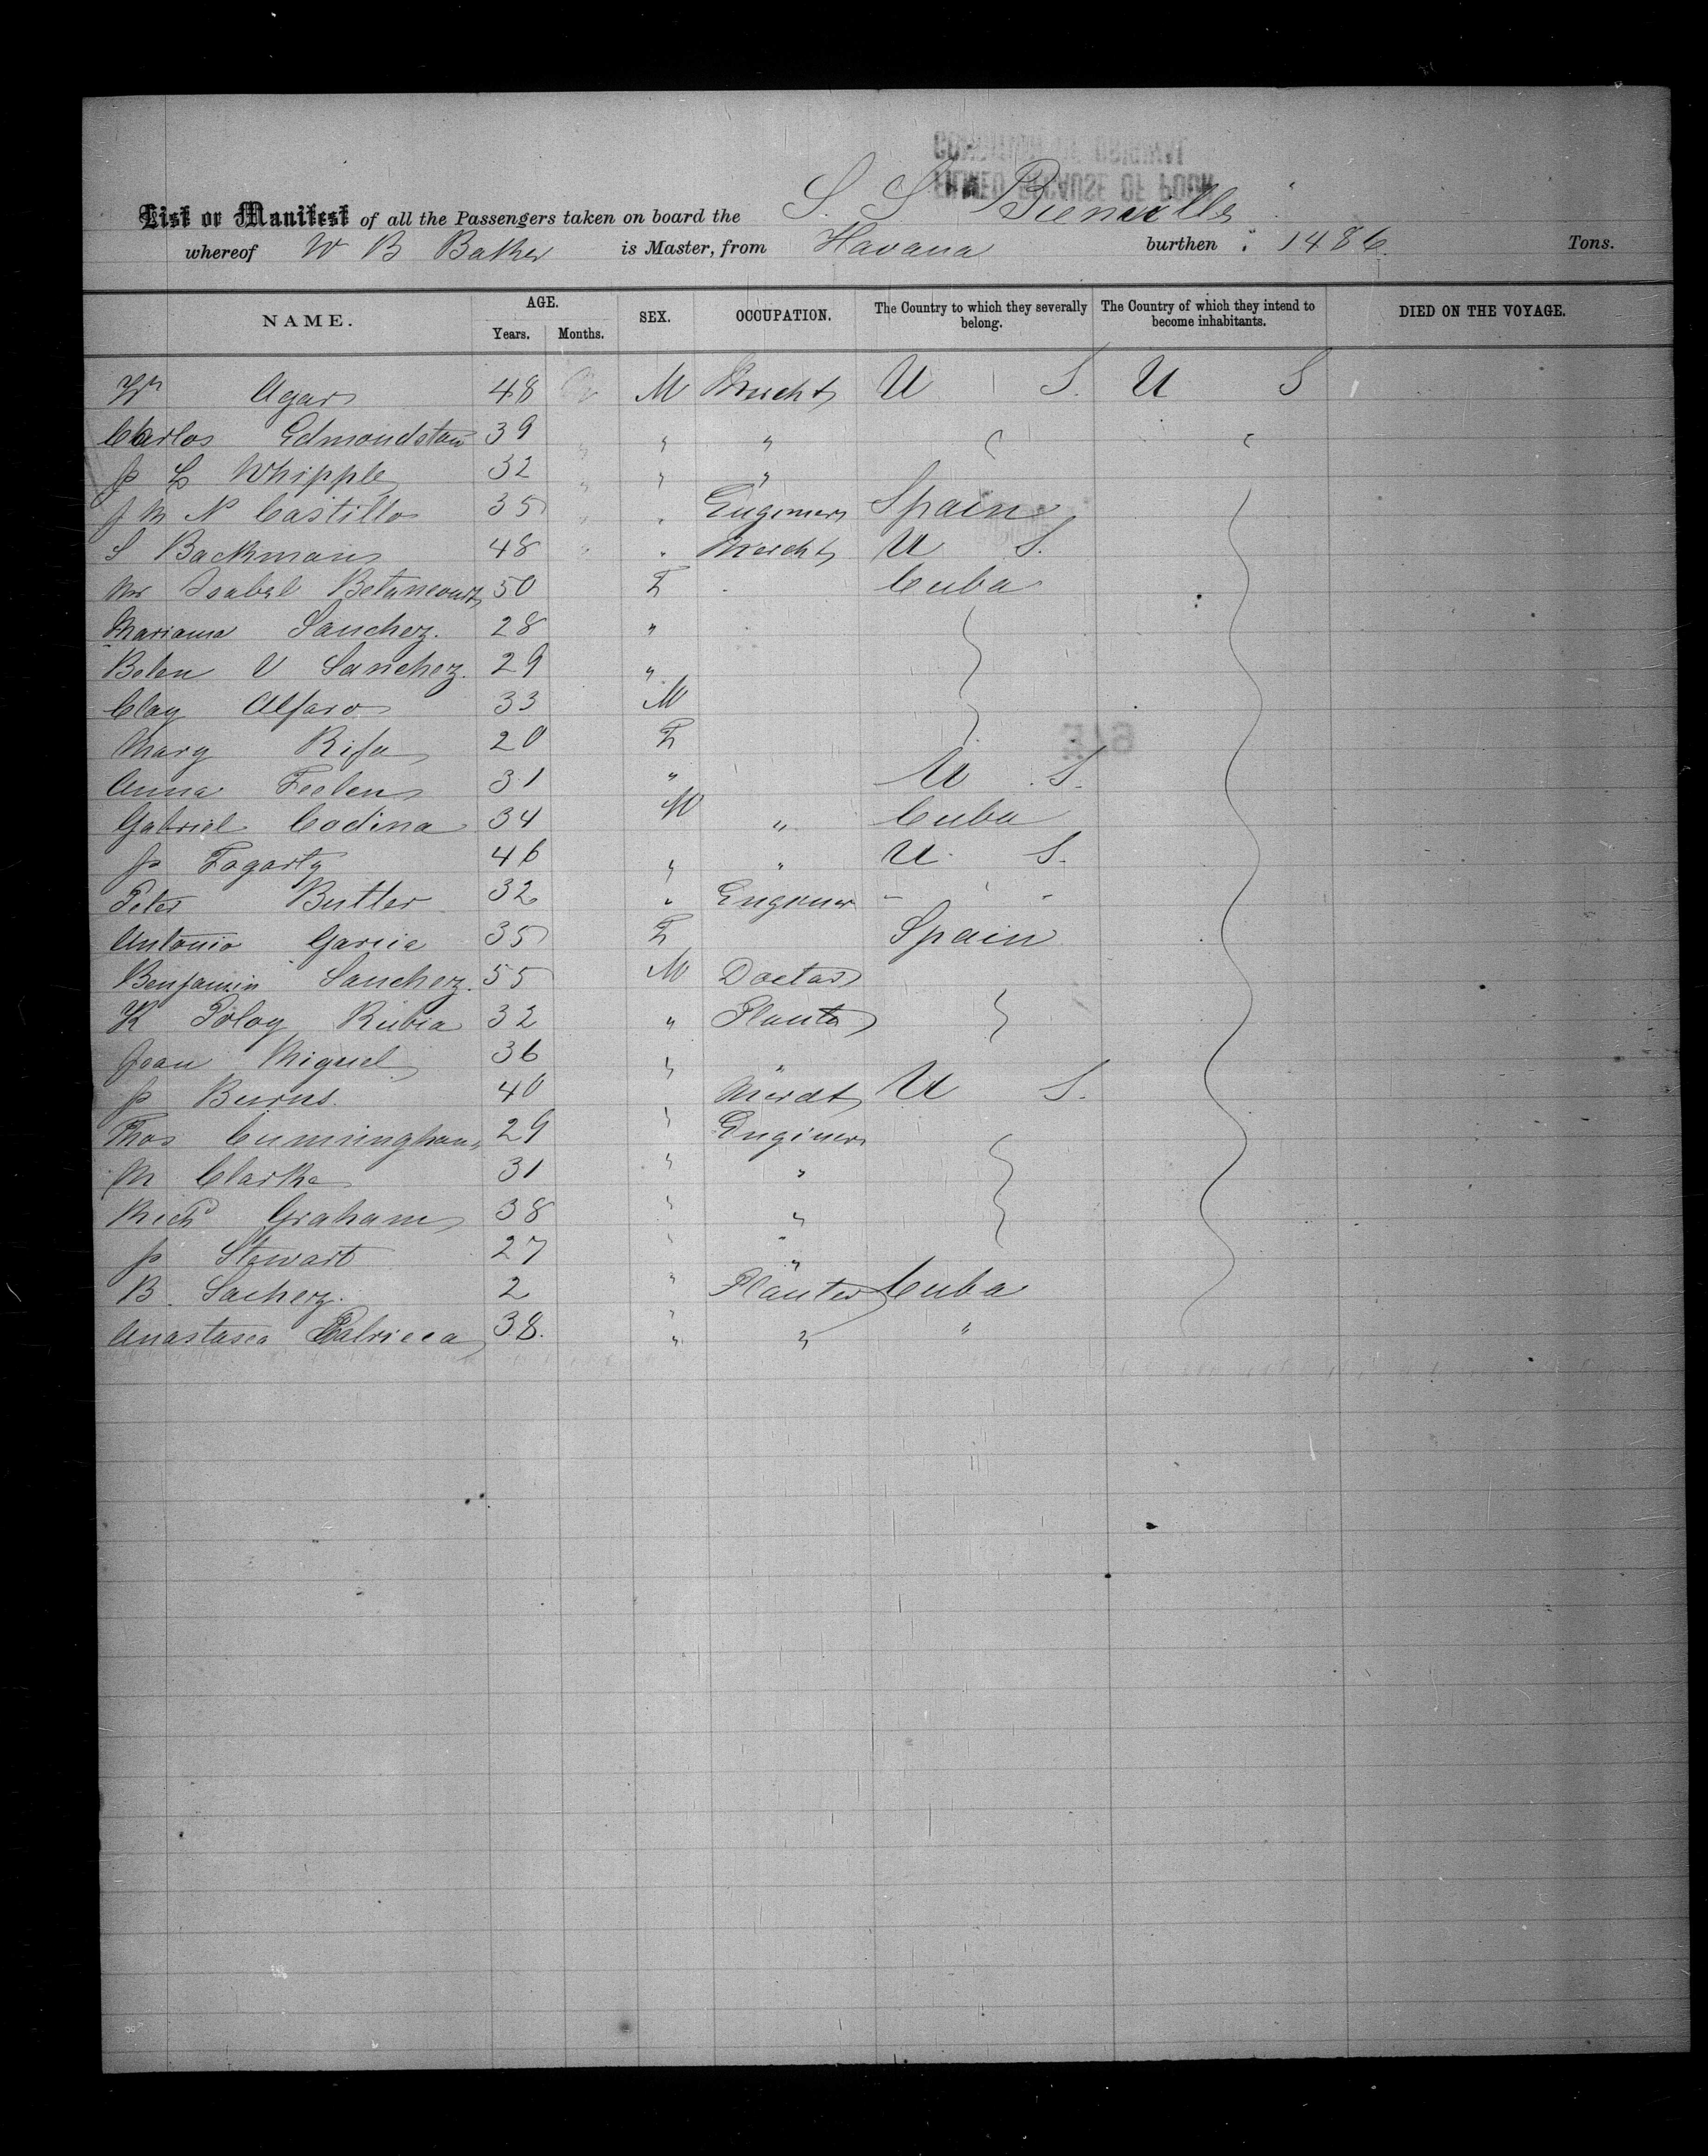 List or Manifest of all the Passengers taken on board the S. S. Bienville
whereof W B Baker is Master, from Havana burthen 1486 Tons.
NAME. AGE. Years. Months. SEX. OCCUPATION. The Country to which they severally belong. The Country of which they intend to become inhabitants. DIED ON THE VOYAGE.
Wm Agar 48 M Mercht U S. U S
Carlos Edmondston 39 " "
J L Whipple 32 " "
J M N Castillo 35 " Engineer Spain
S Backman 48 " Mercht U S.
Mrs Isabel Betancourt 50 F Cuba
Mariana Sanchez. 28 "
Belen V Sanchez. 29 "
Clay Alfaro 33 M
Mary Rifa 20 F
Anna Feelen 31 " U S.
Gabriel Codina 34 M " Cuba
J Fogarty 46 " " U S.
Peter Butler 32 " Engineer " "
Antonio Garcia 35 F Spain
Benjamin Sanchez. 55 M Doctor
K Poloy Rubia 32 " Planter
Joan Miguel 36 " "
J Burns 40 Mercht U S.
Thos Cunningham 29 " Engineer
M Clarke 31 " "
Richd Graham 38 " "
J Stewart 27 " "
B. Sachez. 2 " Planter Cuba
Anastasea 38. " " "